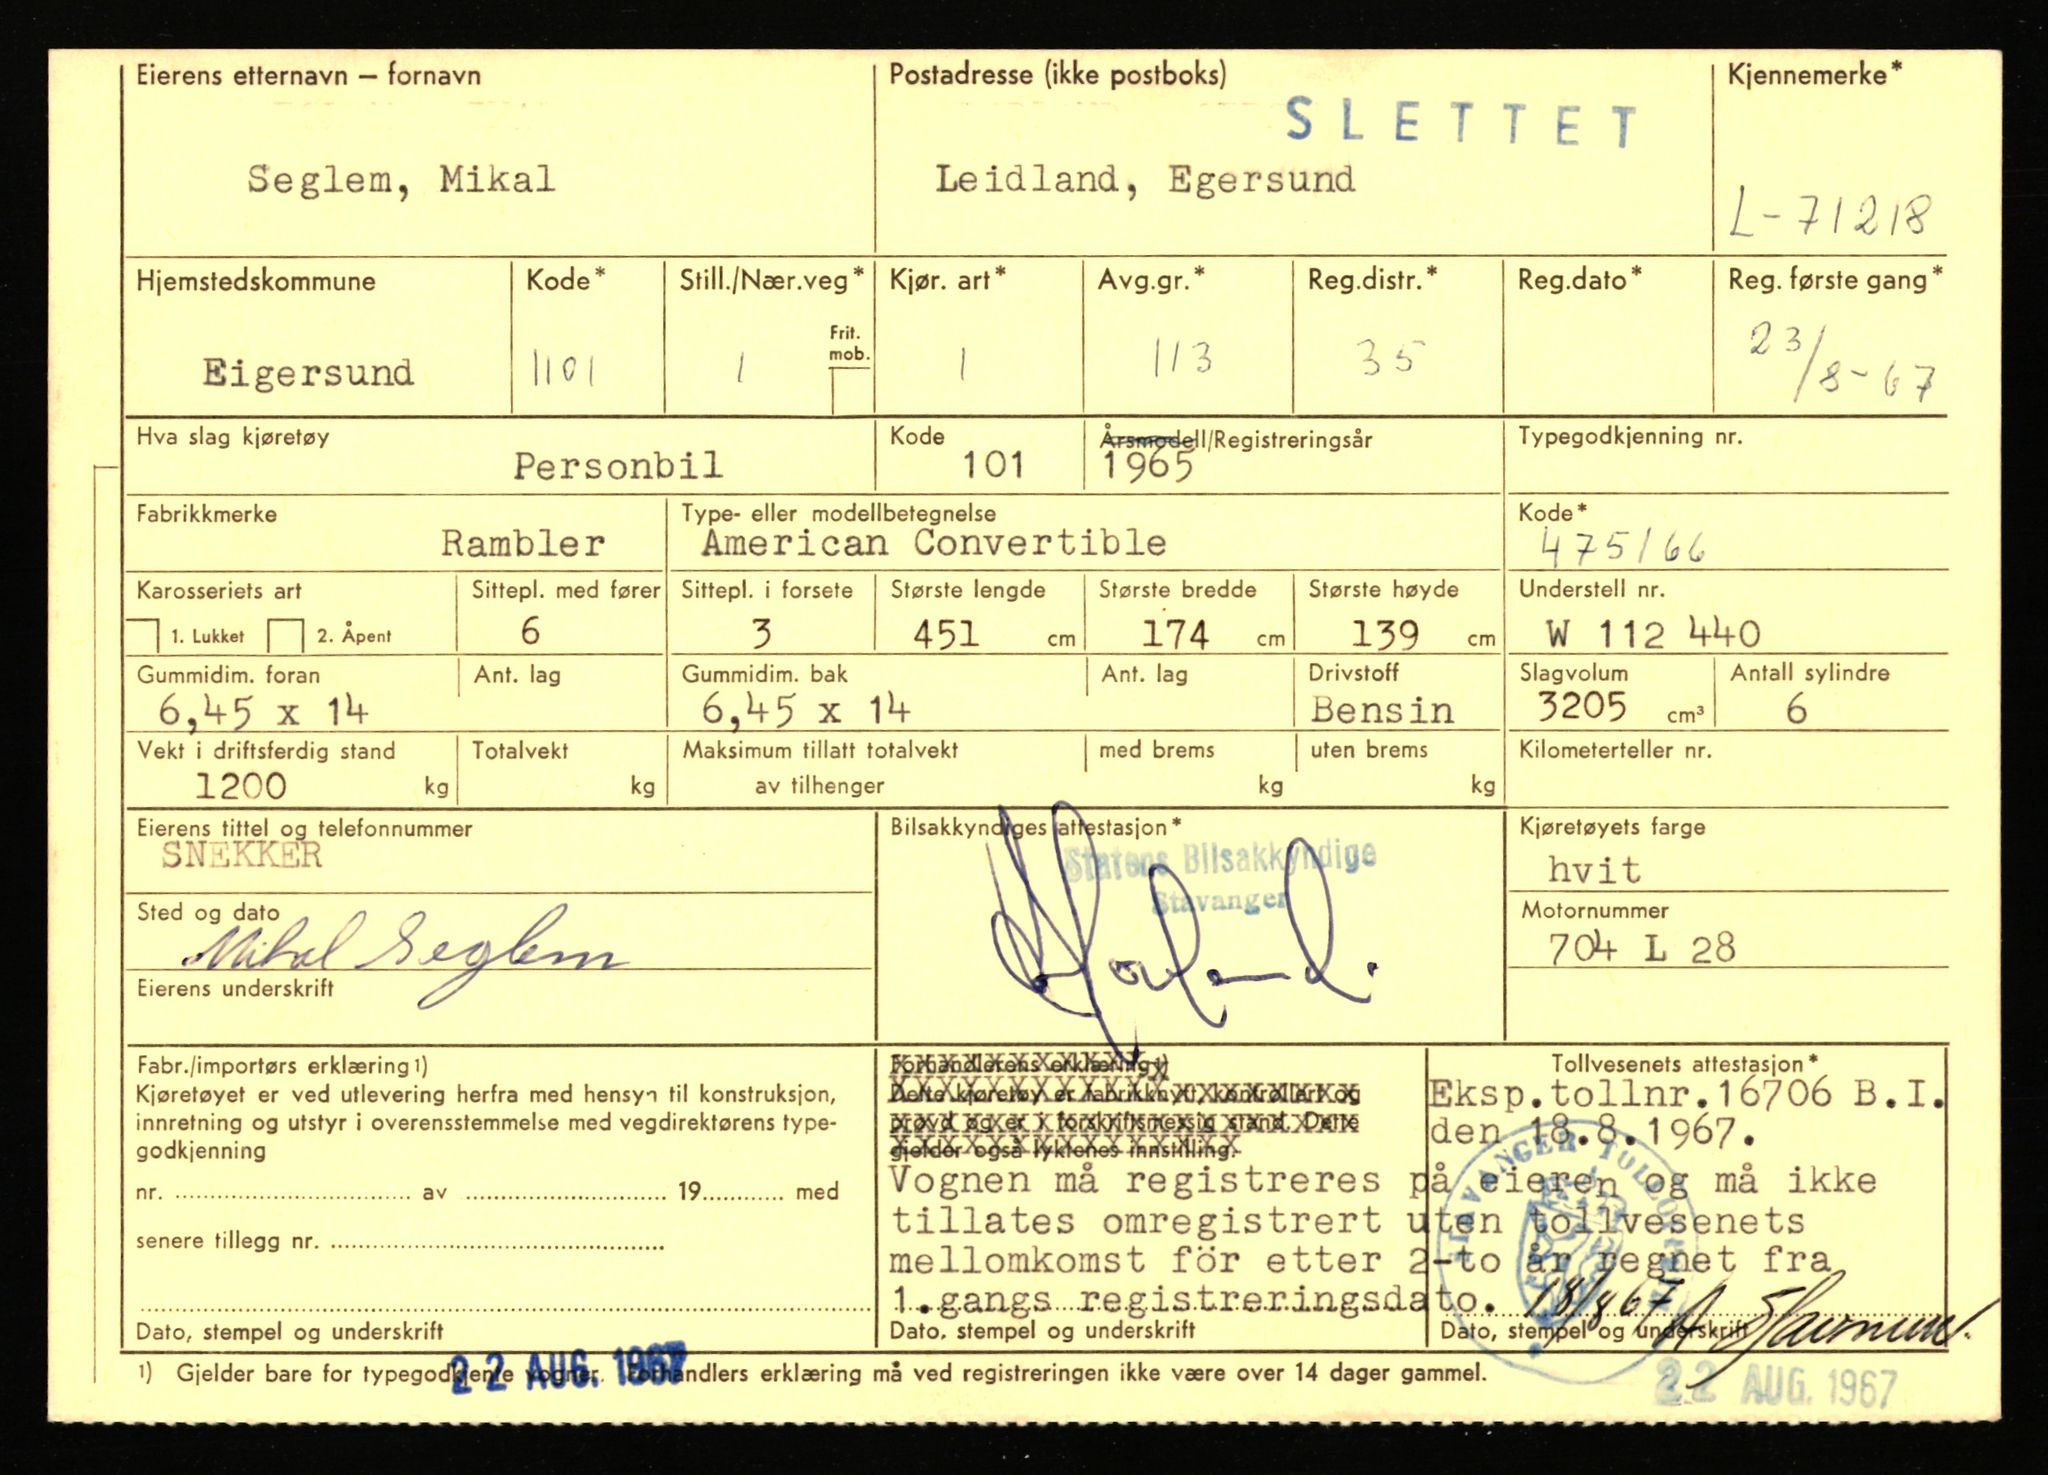 Eierens etternavn – fornavn
Postadresse (ikke postboks)
Kjennemerke*
SLETTET
Seglem, Mikal
Leidland, Egersund
L-71218
Hjemstedskommune
Kode*
Still./Nær.veg*
Kjør. art*
Avg.gr.*
Reg.distr.*
Reg.dato*
Reg. første gang*
Frit. mob.
Eigersund
1101
1
1
113
35
23/8-67
Hva slag kjøretøy
Kode
Årsmodell/Registreringsår
Typegodkjenning nr.
Personbil
101
1965
Fabrikkmerke
Type- eller modellbetegnelse
Kode*
Rambler
American Convertible
475/66
Karosseriets art
Sittepl. med fører
Sittepl. i forsete
Største lengde
Største bredde
Største høyde
Understell nr.
1. Lukket
2. Åpent
6
3
451 cm
174 cm
139 cm
W 112 440
Gummidim. foran
Ant. lag
Gummidim. bak
Ant. lag
Drivstoff
Slagvolum
Antall sylindre
6,45 x 14
6,45 x 14
Bensin
3205 cm³
6
Vekt i driftsferdig stand
Totalvekt
Maksimum tillatt totalvekt
med brems
uten brems
Kilometerteller nr.
1200 kg
kg
av tilhenger
kg
kg
Eierens tittel og telefonnummer
Bilsakkyndiges attestasjon*
Kjøretøyets farge
SNEKKER
Statens Bilsakkyndige
Stavanger
hvit
Sted og dato
Motornummer
Mikal Seglem
704 L 28
Eierens underskrift
Fabr./importørs erklæring 1)
Kjøretøyet er ved utlevering herfra med hensyn til konstruksjon,
innretning og utstyr i overensstemmelse med vegdirektørens type-
godkjenning
nr. av 19 med
senere tillegg nr.
Dato, stempel og underskrift
Forhandlerens erklæring 1)
Dette kjøretøy er fabrikknytt, kontrollert og
prøvd og er i forskriftsmessig stand. Dette
gjelder også lyktenes innstilling.
Vognen må registreres på eieren og må ikke
tillates omregistrert uten tollvesenets
mellomkomst för etter 2-to år regnet fra
1.gangs registreringsdato.
Dato, stempel og underskrift
Tollvesenets attestasjon*
Eksp.tollnr.16706 B.I.
den 18.8.1967.
18/8 67
Dato, stempel og underskrift
1) Gjelder bare for typegodkjente vogner. Forhandlers erklæring må ved registreringen ikke være over 14 dager gammel.
22 AUG. 1967
22 AUG. 1967